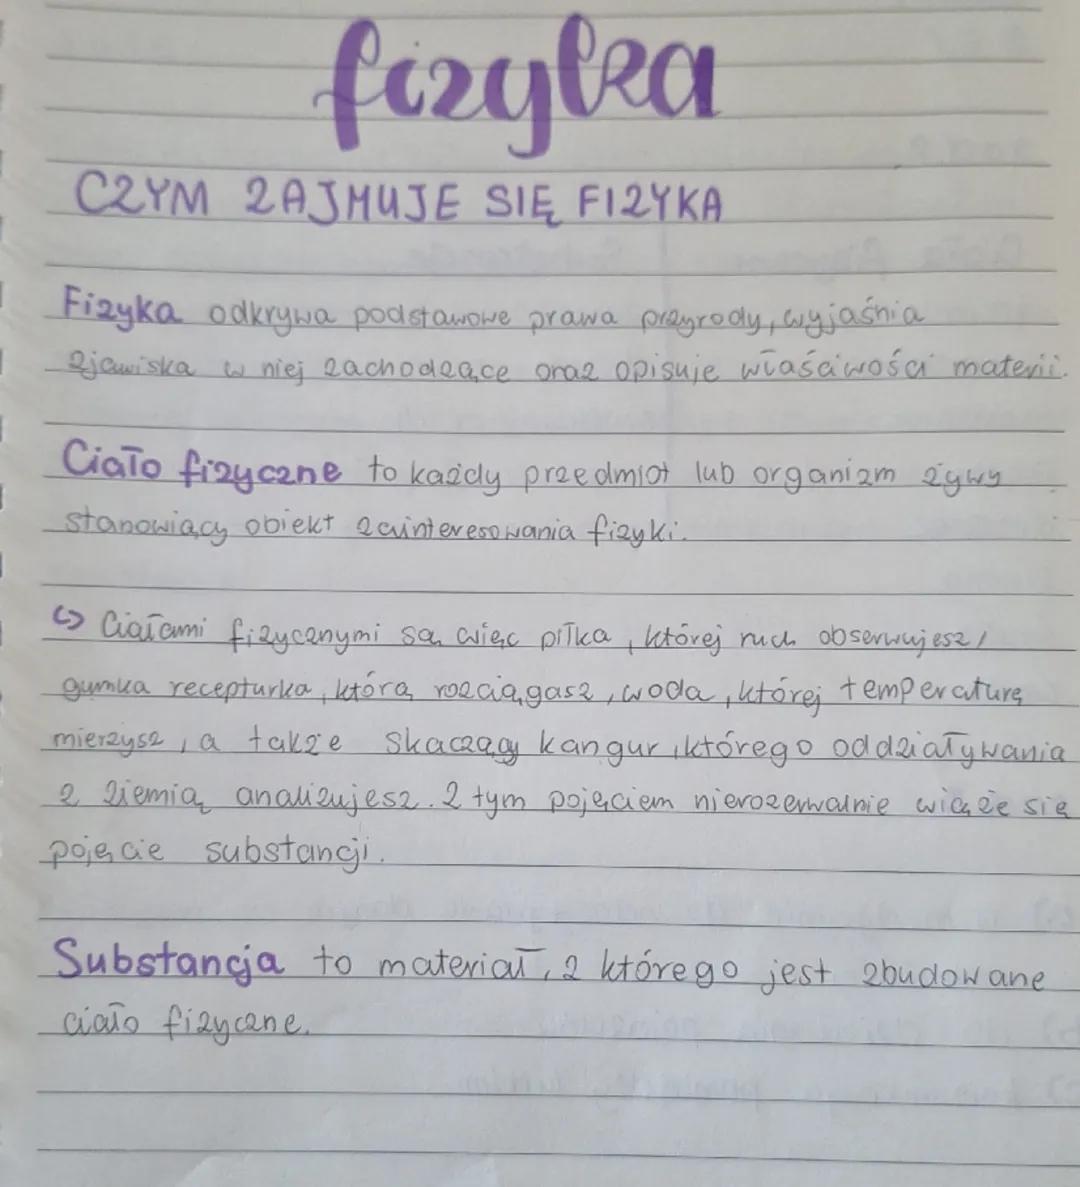 fizyka
CZYM ZAJMUJE SIĘ FIZYKA
Fizyka odkrywa podstawowe prawa przyrody, wyjaśnia
zjawiska w niej zachodzące oraz opisuje właściwości materii.
Ciało fizyczne to każdy przedmiot lub organizm żywy
stanowiący obiekt zainteresowania fizyki.
↪ Ciałami fizycznymi są więc piłka, której ruch obserwujesz,
gumka recepturka, którą rozciągasz, woda, której temperaturę
mierzysz, a także skaczący kangur, którego oddziaływania
z ziemią analizujesz. Z tym pojęciem nierozerwalnie wiąże się
pojęcie substancji.
Substancja to materiał, z którego jest zbudowane
ciało fizyczne.